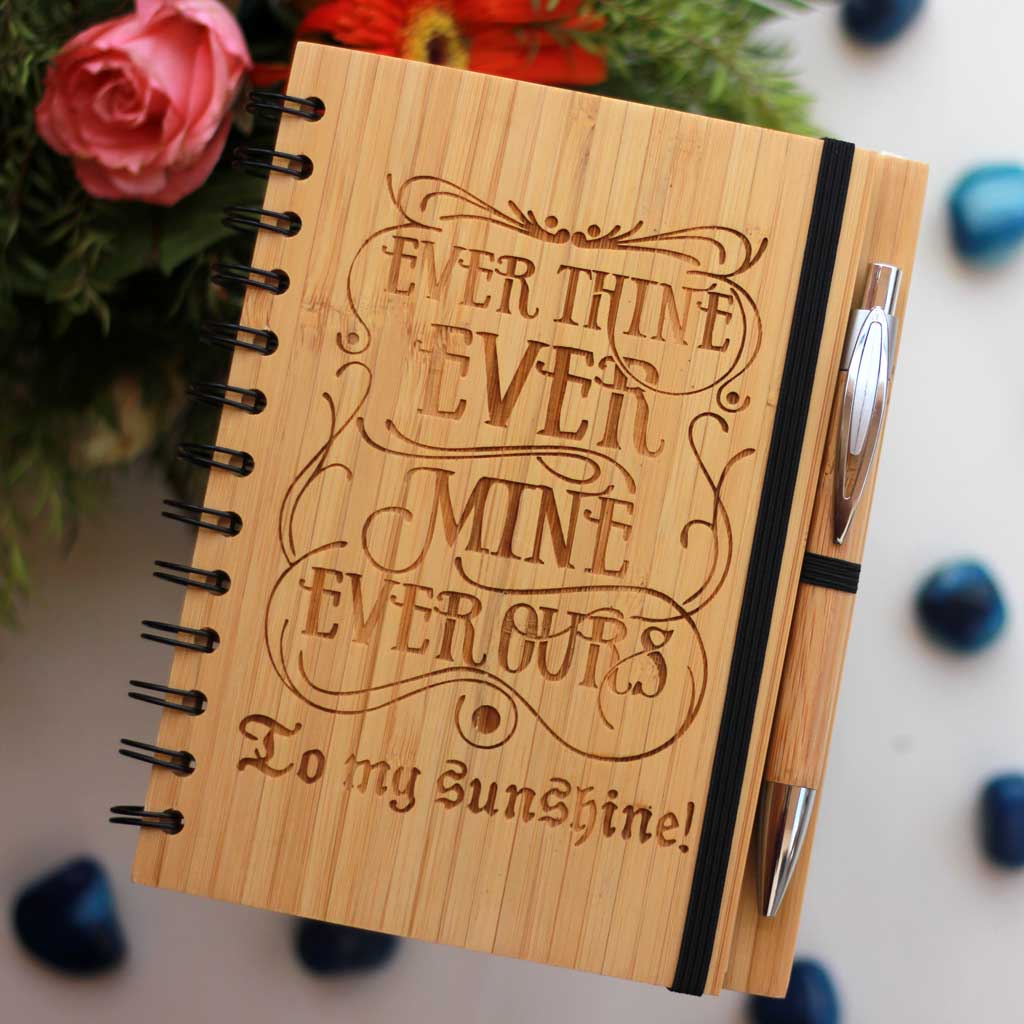 EVER THINE
EVER
MINE
EVER OURS
To my sunshine!